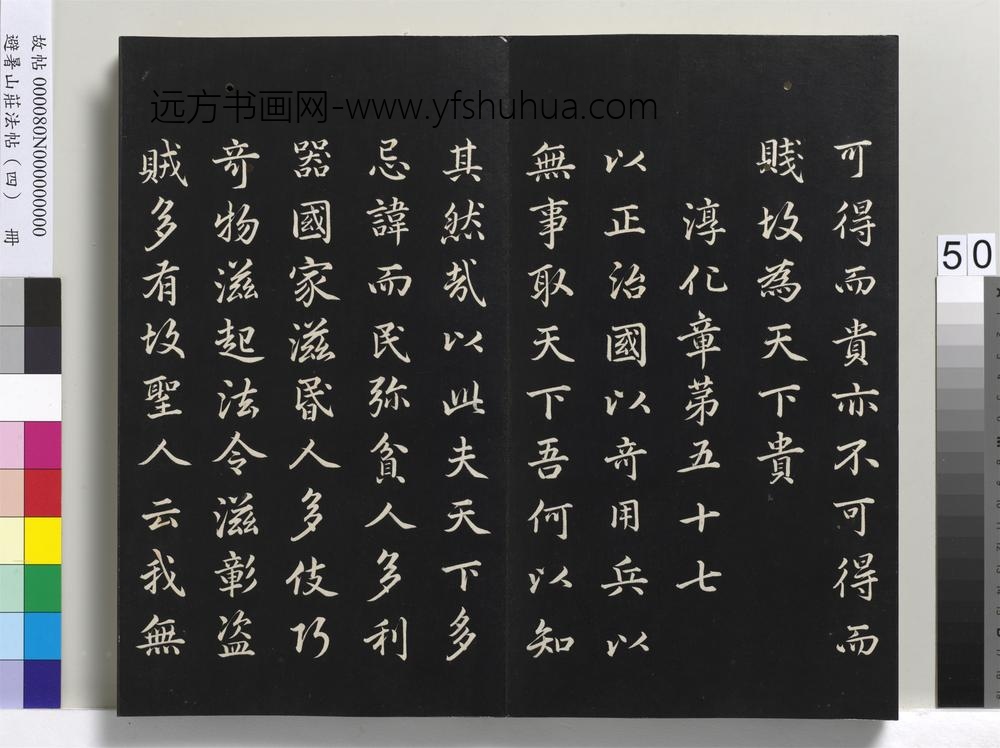 可得而貴亦不可得而
賤故為天下貴
淳化章第五十七
以正治國以奇用兵以
無事取天下吾何以知
其然哉以此夫天下多
忌諱而民弥貧人多利
器國家滋昬人多伎巧
奇物滋起法令滋彰盗
賊多有故聖人云我無
远方书画网-www.yfshuhua.com
故帖 000080N000000000
避暑山莊法帖（四） 冊
50